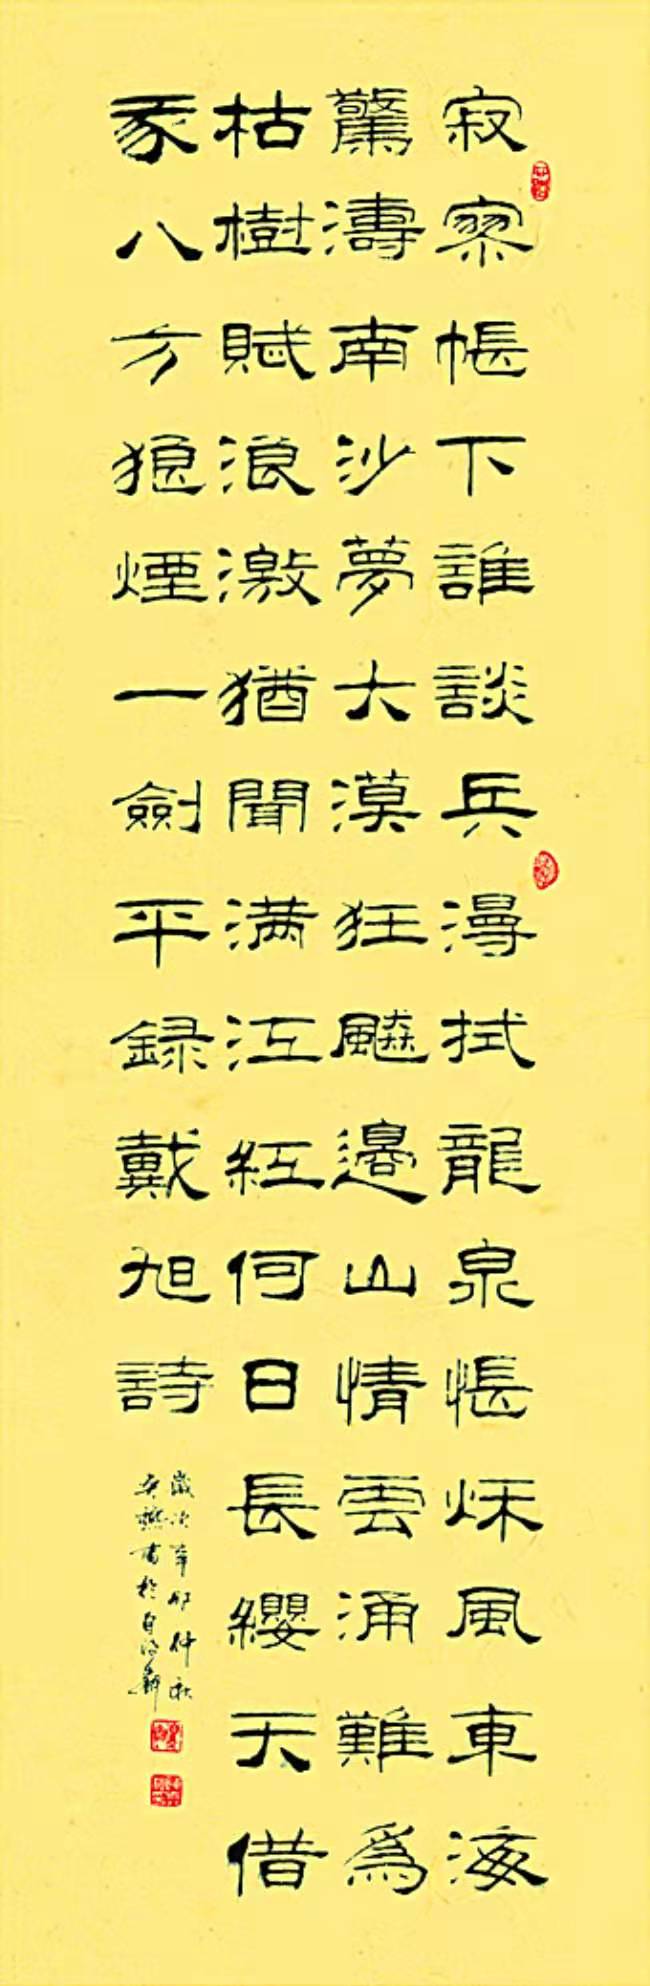 寂寥帳下誰談兵漫拭龍泉悵秌風東海
驚濤南沙夢大漠狂飈邊山情雲涌難爲
枯樹賦浪激猶聞满江紅何日長纓天借
我八方狼煙一劍平録戴旭詩
歲次辛卯仲秋
書於自軒